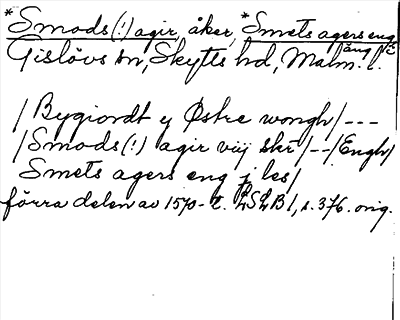 *Smods(!) agir, åker, *Smets agers eng
äng
Gislövs sn, Skytts hd, Malm. l.
/Bygiordt y Østre wongh/---
/Smods(!) agir viij skr/--/Engh/
Smets agers eng j les/
förra delen av 1570-t. LSLB 1, s. 376. orig.